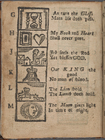 G
As runs the Glass
Mans life doth pass.
H
My Book and Heart
Shall never part.
J
Job feels the Rod
Yet blesses GOD.
K
Our KING the
good
No man of blood.
L
The Lion bold
The Lamb doth hold.
M
The Moon gives light
In time of night.